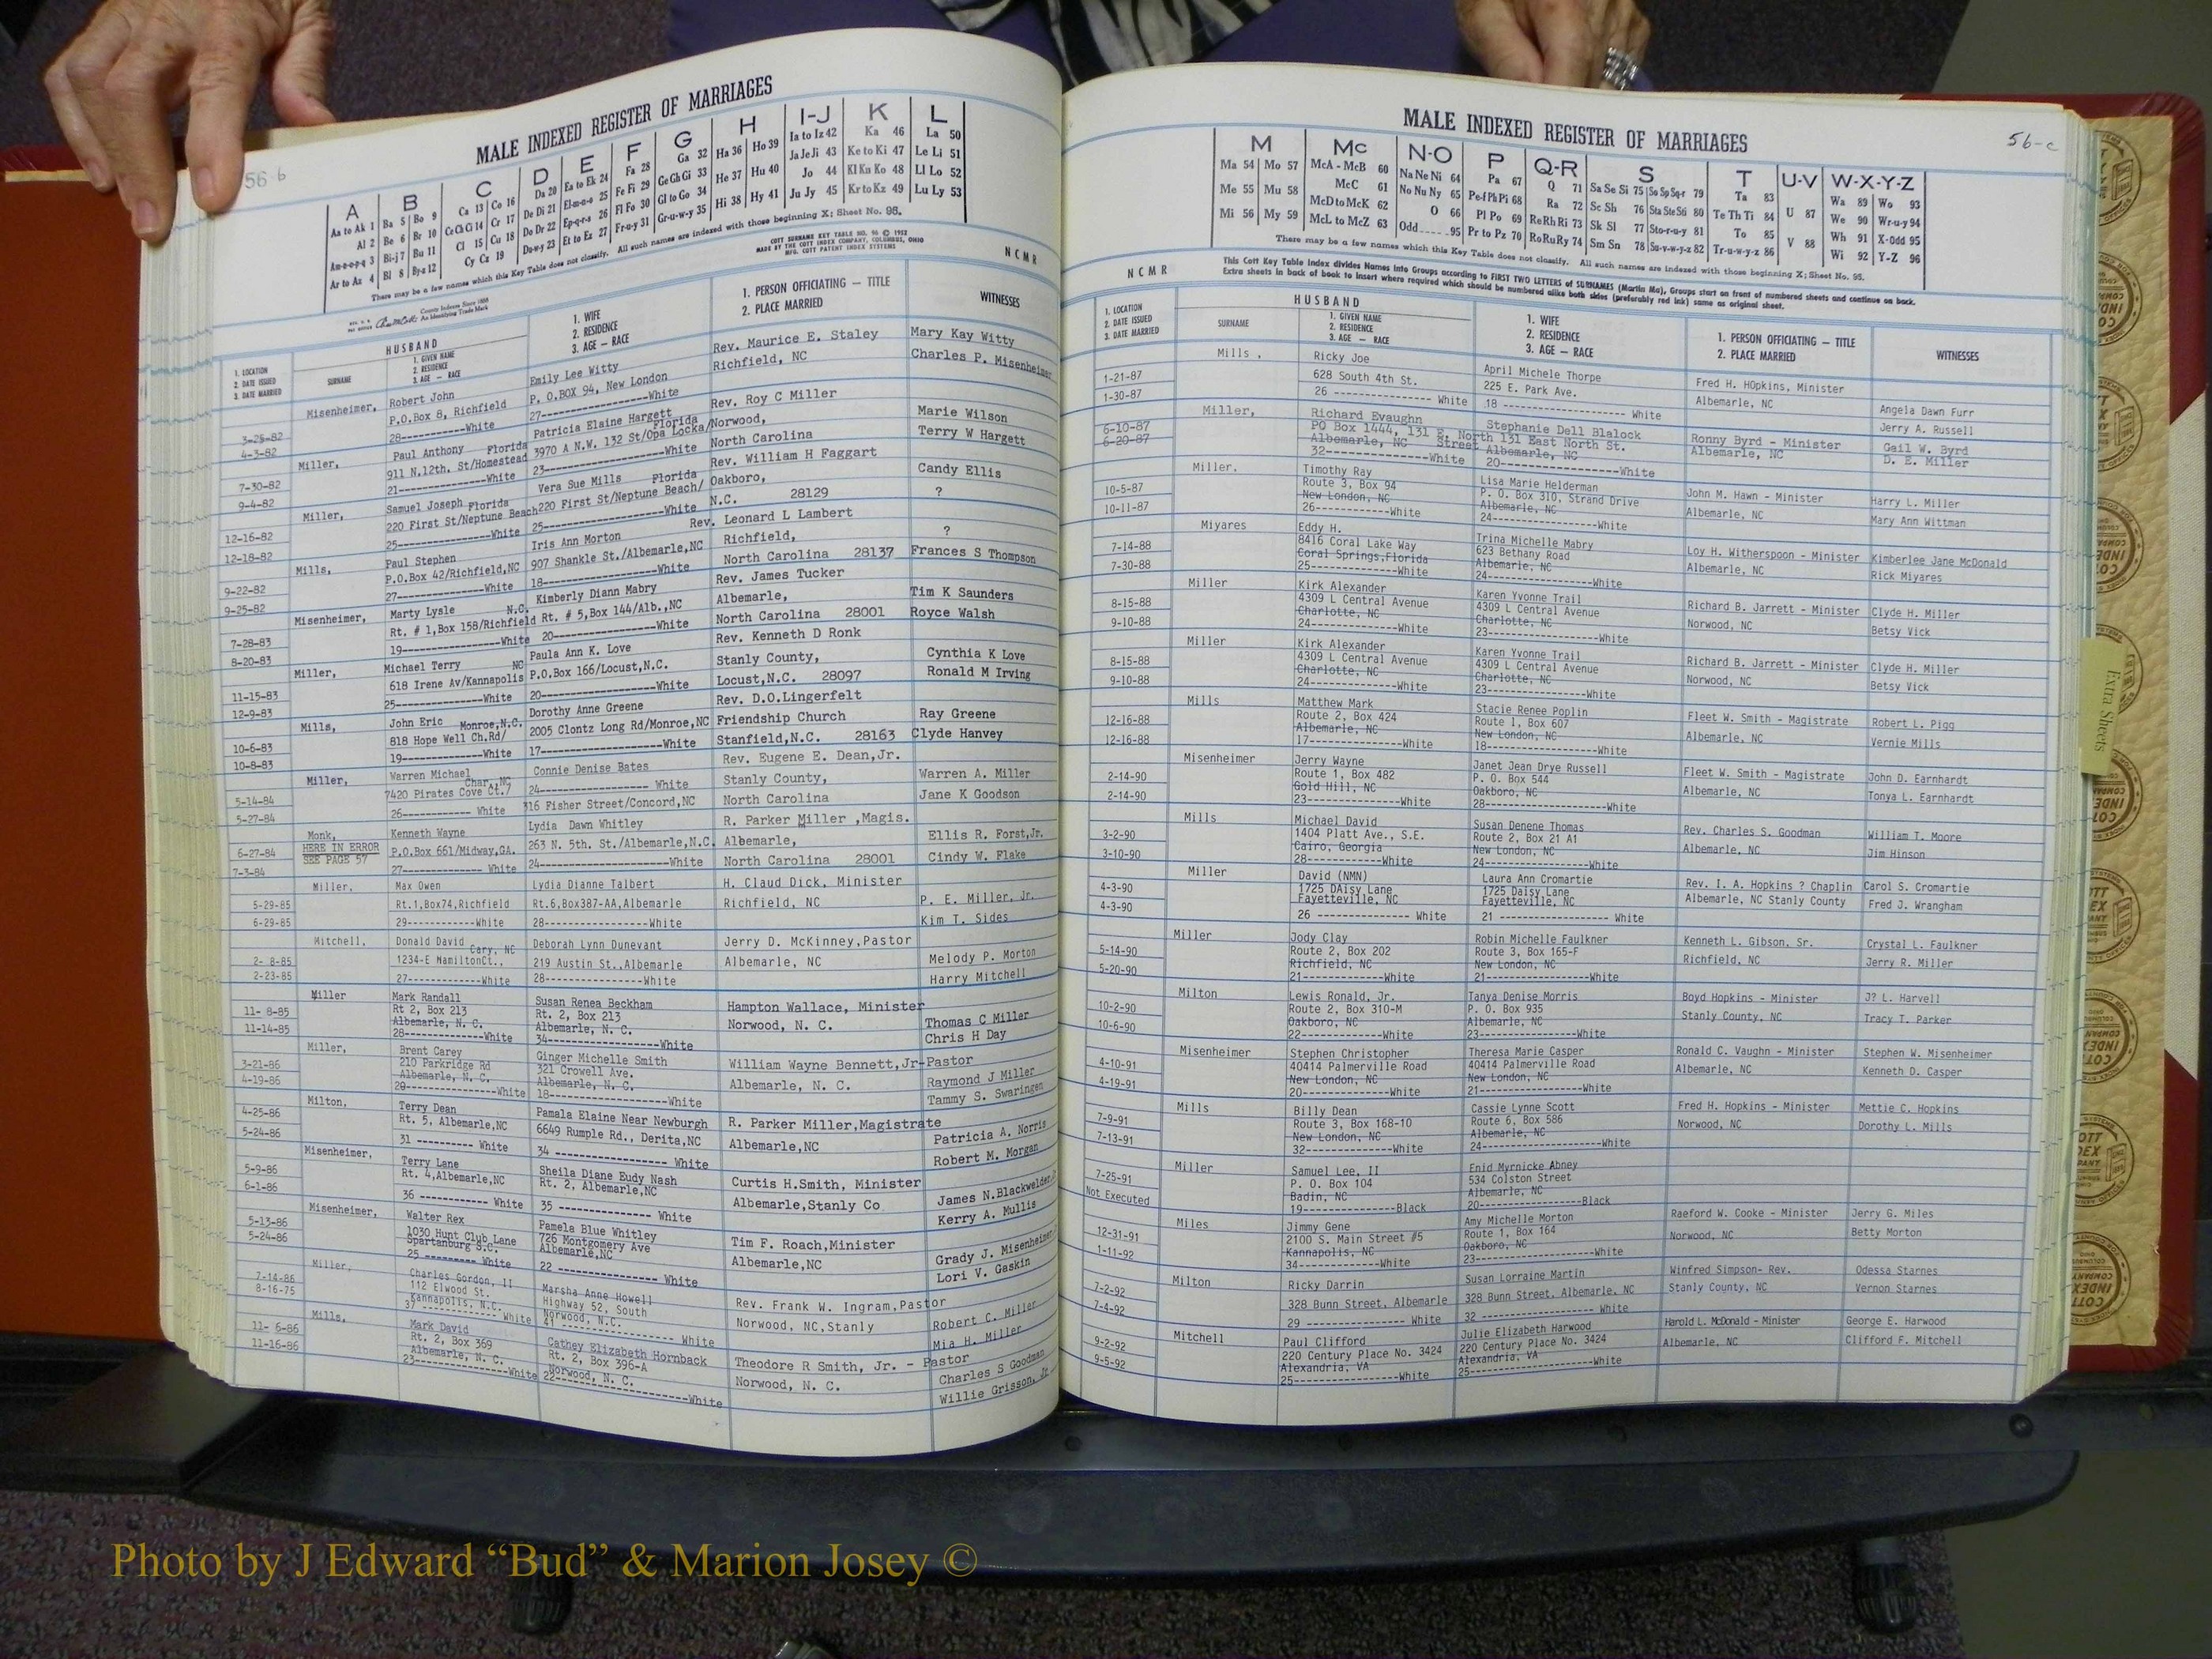 56-b
MALE INDEXED REGISTER OF MARRIAGES
A B C D E F G H I-J K L
Aa to Ak 1 Ba 5 Bo 9 Ca 13 Co 16 Da 20 Ea to Ek 24 Fa 28 Ga 32 Ha 36 Ho 39 Ia to Iz 42 Ka 46 La 50
Al 2 Be 6 Br 10 Ce Ch Ci 14 Cr 17 De Di 21 El-m-n-o 25 Fe Fi 29 Ge Gh Gi 33 He 37 Hu 40 Ja Je Ji 43 Ke to Ki 47 Le Li 51
Am-n-o-p-q 3 Bi-j 7 Bu 11 Cl 15 Cu 18 Do Dr 22 Ep-q-r-s 26 Fl Fo 30 Gl to Go 34 Hi 38 Hy 41 Jo 44 Kl Kn Ko 48 Ll Lo 52
Ar to Az 4 Bl 8 By-z 12 Cy Cz 19 Du-w-y 23 Et to Ez 27 Fr-u-y 31 Gr-u-w-y 35 Ju Jy 45 Kr to Kz 49 Lu Ly 53
There may be a few names which this Key Table does not classify. All such names are indexed with those beginning X; Sheet No. 96.
County Indexes Since 1888
An Identifying Trade Mark
COTT SURNAME KEY TABLE NO. 96 © 1952
MADE BY THE COTT INDEX COMPANY, COLUMBUS, OHIO
MFG. COTT PATENT INDEX SYSTEMS
NCMR
1. LOCATION
2. DATE ISSUED
3. DATE MARRIED
HUSBAND
SURNAME
1. GIVEN NAME
2. RESIDENCE
3. AGE — RACE
1. WIFE
2. RESIDENCE
3. AGE — RACE
1. PERSON OFFICIATING — TITLE
2. PLACE MARRIED
WITNESSES
Misenheimer, Robert John Emily Lee Witty Rev. Maurice E. Staley Mary Kay Witty
3-25-82 P.O.Box 8, Richfield P. O.BOX 94, New London Richfield, NC Charles P. Misenheimer
4-3-82 28----------White 27----------------White
Miller, Paul Anthony Florida Patricia Elaine Hargett Florida Rev. Roy C Miller Marie Wilson
7-30-82 911 N.12th. St/Homestead 3970 A N.W. 132 St/Opa Locka/ Norwood, Terry W Hargett
9-4-82 21---------------White 23----------------White North Carolina
Miller, Samuel Joseph Florida Vera Sue Mills Florida Rev. William H Faggart Candy Ellis
12-16-82 220 First St/Neptune Beach 220 First St/Neptune Beach/ Oakboro, ?
12-18-82 25----------------White 25----------------White N.C. 28129
Mills, Paul Stephen Iris Ann Morton Rev. Leonard L Lambert ?
9-22-82 P.O.Box 42/Richfield,NC 907 Shankle St./Albemarle,NC Richfield, Frances S Thompson
9-25-82 27--------------White 18----------------White North Carolina 28137
Misenheimer, Marty Lysle N.C. Kimberly Diann Mabry Rev. James Tucker Tim K Saunders
7-28-83 Rt. # 1,Box 158/Richfield Rt. # 5,Box 144/Alb.,NC Albemarle, Royce Walsh
8-20-83 19----------------White 20----------------White North Carolina 28001
Miller, Michael Terry NC Paula Ann K. Love Rev. Kenneth D Ronk Cynthia K Love
11-15-83 618 Irene Av/Kannapolis P.O.Box 166/Locust,N.C. Stanly County, Ronald M Irving
12-9-83 25---------------White 20----------------White Locust,N.C. 28097
Mills, John Eric Monroe,N.C. Dorothy Anne Greene Rev. D.O.Lingerfelt Ray Greene
10-6-83 818 Hope Well Ch.Rd/ 2005 Clontz Long Rd/Monroe,NC Friendship Church Clyde Hanvey
10-8-83 19---------------White 17------------------White Stanfield,N.C. 28163
Miller, Warren Michael Char.,NC Connie Denise Bates Rev. Eugene E. Dean,Jr. Warren A. Miller
5-14-84 7420 Pirates Cove Ct.7 24------------------ White Stanly County, Jane K Goodson
5-27-84 26------------ White 316 Fisher Street/Concord,NC North Carolina
Monk, Kenneth Wayne Lydia Dawn Whitley R. Parker Miller ,Magis. Ellis R. Forst,Jr.
6-27-84 HERE IN ERROR P.O.Box 661/Midway,GA. 263 N. 5th. St./Albemarle,N.C. Albemarle, Cindy W. Flake
7-3-84 SEE PAGE 57 27-------------- White 24-------------------White North Carolina 28001
Miller, Max Owen Lydia Dianne Talbert H. Claud Dick, Minister
5-29-85 Rt.1,Box74,Richfield Rt.6,Box387-AA,Albemarle Richfield, NC P. E. Miller, Jr.
6-29-85 29----------White 28--------------White Kim T. Sides
Mitchell, Donald David Cary, NC Deborah Lynn Dunevant Jerry D. McKinney,Pastor
2- 8-85 1234-E HamiltonCt., 219 Austin St.,Albemarle Albemarle, NC Melody P. Morton
2-23-85 27-----------White 28--------------White Harry Mitchell
Miller Mark Randall Susan Renea Beckham Hampton Wallace, Minister
11- 8-85 Rt 2, Box 213 Rt. 2, Box 213 Norwood, N. C. Thomas C Miller
11-14-85 Albemarle, N. C. Albemarle, N. C. Chris H Day
28------------White 34------------------White
Miller, Brent Carey Ginger Michelle Smith William Wayne Bennett,Jr-Pastor
3-21-86 210 Parkridge Rd 321 Crowell Ave. Albemarle, N. C. Raymond J Miller
4-19-86 Albemarle, N. C. Albemarle, N. C. Tammy S. Swaringen
20--------------White 18------------------White
Milton, Terry Dean Pamala Elaine Near Newburgh R. Parker Miller,Magistrate
4-25-86 Rt. 5, Albemarle,NC 6649 Rumple Rd., Derita,NC Albemarle,NC Patricia A. Norris
5-24-86 31 ---------- White 34 ----------------- White Robert M. Morgan
Misenheimer, Terry Lane Sheila Diane Eudy Nash Curtis H.Smith, Minister
5-9-86 Rt. 4,Albemarle,NC Rt. 2, Albemarle,NC Albemarle,Stanly Co James N.Blackwelder
6-1-86 36 ------------ White 35 --------------- White Kerry A. Mullis
Misenheimer, Walter Rex Pamela Blue Whitley Tim F. Roach,Minister
5-13-86 1030 Hunt Club Lane 726 Montgomery Ave Albemarle,NC Grady J. Misenheimer
5-24-86 Spartanburg S.C. Albemarle,NC Lori V. Gaskin
25 --------- White 22 --------------- White
Miller, Charles Gordon, II Marsha Anne Howell Rev. Frank W. Ingram,Pastor
7-14-86 112 Elwood St. Highway 52, South Norwood, NC,Stanly Robert C. Miller
8-16-75 Kannapolis, N.C. Norwood, N.C. Mia H. Miller
37 -------------- White 41 ----------------- White
Mills, Mark David Cathey Elizabeth Hornback Theodore R Smith, Jr. - Pastor
11- 6-86 Rt. 2, Box 369 Rt. 2, Box 396-A Norwood, N. C. Charles S Goodman
11-16-86 Albemarle, N. C. Norwood, N. C. Willie Grisson, Jr
23---------------White 22-----------------White
56-c
MALE INDEXED REGISTER OF MARRIAGES
M Mc N-O P Q-R S T U-V W-X-Y-Z
Ma 54 Mo 57 McA - McB 60 Na Ne Ni 64 Pa 67 Q 71 Sa Se Si 75 So Sp Sq-r 79 Ta 83 Wa 89 Wo 93
Me 55 Mu 58 McC 61 No Nu Ny 65 Pe-f Ph Pi 68 Ra 72 Sc Sh 76 Sta Ste Sti 80 Te Th Ti 84 U 87 We 90 Wr-u-y 94
Mi 56 My 59 McD to McK 62 O 66 Pl Po 69 Re Rh Ri 73 Sk Sl 77 Sto-r-u-y 81 To 85 Wh 91 X-Odd 95
McL to McZ 63 Odd-----95 Pr to Pz 70 Ro Ru Ry 74 Sm Sn 78 Su-v-w-y-z 82 Tr-u-w-y-z 86 V 88 Wi 92 Y-Z 96
There may be a few names which this Key Table does not classify. All such names are indexed with those beginning X; Sheet No. 95.
This Cott Key Table Index divides Names into Groups according to FIRST TWO LETTERS of SURNAMES (Martin Ma), Groups start on front of numbered sheets and continue on back.
Extra sheets in back of book to insert where required which should be numbered alike both sides (preferably red ink) same as original sheet.
NCMR
1. LOCATION
2. DATE ISSUED
3. DATE MARRIED
HUSBAND
SURNAME
1. GIVEN NAME
2. RESIDENCE
3. AGE — RACE
1. WIFE
2. RESIDENCE
3. AGE — RACE
1. PERSON OFFICIATING — TITLE
2. PLACE MARRIED
WITNESSES
Mills , Ricky Joe April Michele Thorpe Fred H. HOpkins, Minister
1-21-87 628 South 4th St. 225 E. Park Ave. Albemarle, NC Angela Dawn Furr
1-30-87 26 ------------ White 18 ---------------- White Jerry A. Russell
Miller, Richard Evaughn Stephanie Dell Blalock Ronny Byrd - Minister Gail W. Byrd
6-10-87 PO Box 1444, 131 E. North Street 131 East North St. Albemarle, NC D. E. Miller
6-20-87 Albemarle, NC Albemarle, NC
32--------------White 20-----------------White
Miller. Timothy Ray Lisa Marie Helderman John M. Hawn - Minister Harry L. Miller
10-5-87 Route 3, Box 94 P. O. Box 310, Strand Drive Albemarle, NC Mary Ann Wittman
10-11-87 New London, NC Albemarle, NC
26-----------White 24--------------White
Miyares Eddy H. Trina Michelle Mabry Loy H. Witherspoon - Minister Kimberlee Jane McDonald
7-14-88 8416 Coral Lake Way 623 Bethany Road Albemarle, NC Rick Miyares
7-30-88 Coral Springs,Florida Albemarle, NC
25-------------White 24--------------White
Miller Kirk Alexander Karen Yvonne Trail Richard B. Jarrett - Minister Clyde H. Miller
8-15-88 4309 L Central Avenue 4309 L Central Avenue Norwood, NC Betsy Vick
9-10-88 Charlotte, NC Charlotte, NC
24-------------White 23--------------White
Miller Kirk Alexander Karen Yvonne Trail Richard B. Jarrett - Minister Clyde H. Miller
8-15-88 4309 L Central Avenue 4309 L Central Avenue Norwood, NC Betsy Vick
9-10-88 Charlotte, NC Charlotte, NC
24-------------White 23--------------White
Mills Matthew Mark Stacie Renee Poplin Fleet W. Smith - Magistrate Robert L. Pigg
12-16-88 Route 2, Box 424 Route 1, Box 607 Albemarle, NC Vernie Mills
12-16-88 Albemarle, NC New London, NC
17-------------White 18--------------White
Misenheimer Jerry Wayne Janet Jean Drye Russell Fleet W. Smith - Magistrate John D. Earnhardt
2-14-90 Route 1, Box 482 P. O. Box 544 Albemarle, NC Tonya L. Earnhardt
2-14-90 Gold Hill, NC Oakboro, NC
23-------------White 28---------------White
Mills Michael David Susan Denene Thomas Rev. Charles S. Goodman William T. Moore
3-2-90 1404 Platt Ave., S.E. Route 2, Box 21 A1 Albemarle, NC Jim Hinson
3-10-90 Cairo, Georgia New London, NC
28-----------White 24--------------White
Miller David (NMN) Laura Ann Cromartie Rev. I. A. Hopkins ? Chaplin Carol S. Cromartie
4-3-90 1725 DAisy Lane 1725 Daisy Lane Albemarle, NC Stanly County Fred J. Wrangham
4-3-90 Fayetteville, NC Fayetteville, NC
26 ------------ White 21 -------------- White
Miller Jody Clay Robin Michelle Faulkner Kenneth L. Gibson, Sr. Crystal L. Faulkner
5-14-90 Route 2, Box 202 Route 3, Box 165-F Richfield, NC Jerry R. Miller
5-20-90 Richfield, NC New London, NC
21-----------White 21-------------White
Milton Lewis Ronald, Jr. Tanya Denise Morris Boyd Hopkins - Minister J? L. Harvell
10-2-90 Route 2, Box 310-M P. O. Box 935 Stanly County, NC Tracy T. Parker
10-6-90 Oakboro, NC Albemarle, NC
22-----------White 23--------------White
Misenheimer Stephen Christopher Theresa Marie Casper Ronald C. Vaughn - Minister Stephen W. Misenheimer
4-10-91 40414 Palmerville Road 40414 Palmerville Road Albemarle, NC Kenneth D. Casper
4-19-91 New London, NC New London, NC
20------------White 21--------------White
Mills Billy Dean Cassie Lynne Scott Fred H. Hopkins - Minister Mettie C. Hopkins
7-9-91 Route 3, Box 168-10 Route 6, Box 586 Norwood, NC Dorothy L. Mills
7-13-91 New London, NC Albemarle, NC
32------------White 24----------------White
Miller Samuel Lee, II Enid Myrnicke Abney
7-25-91 P. O. Box 104 534 Colston Street
Not Executed Badin, NC Albemarle, NC
19-------------Black 20--------------Black
Miles Jimmy Gene Amy Michelle Morton Raeford W. Cooke - Minister Jerry G. Miles
12-31-91 2100 S. Main Street #5 Route 1, Box 164 Norwood, NC Betty Morton
1-11-92 Kannapolis, NC Oakboro, NC
34-----------White 23---------------White
Milton Ricky Darrin Susan Lorraine Martin Winfred Simpson- Rev. Odessa Starnes
7-2-92 328 Bunn Street, Albemarle 328 Bunn Street, Albemarle, NC Stanly County, NC Vernon Starnes
7-4-92 29 ------------ White 32 --------------- White
Mitchell Paul Clifford Julie Elizabeth Harwood Harold L. McDonald - Minister George E. Harwood
9-2-92 220 Century Place No. 3424 220 Century Place No. 3424 Albemarle, NC Clifford F. Mitchell
9-5-92 Alexandria, VA Alexandria, VA
25------------White 25---------------White
Extra Sheets
Photo by J Edward “Bud” & Marion Josey ©